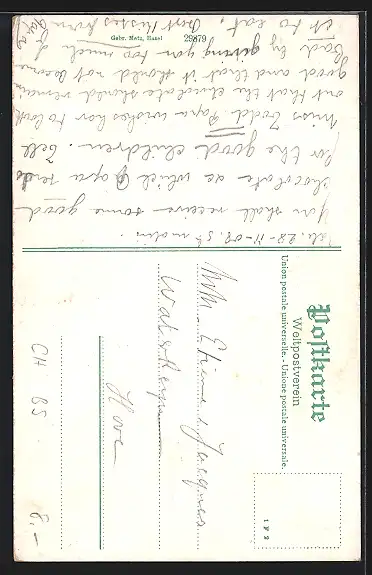 Postkarte
Weltpostverein
Union postale universelle. - Unione postale universale.
1 F 2
Gebr. Metz, Basel
29679
MM Etienne & Jacques
Hove
You shall receive some good
chocolate de which Papa sends
for the good children. Tell
Miss Todd Papa wishes her to look
out that the chocolate should remain
good and that it should not become
bad by giving you too much of
it to eat. Best kisses from
Papa
CH 85
8,-